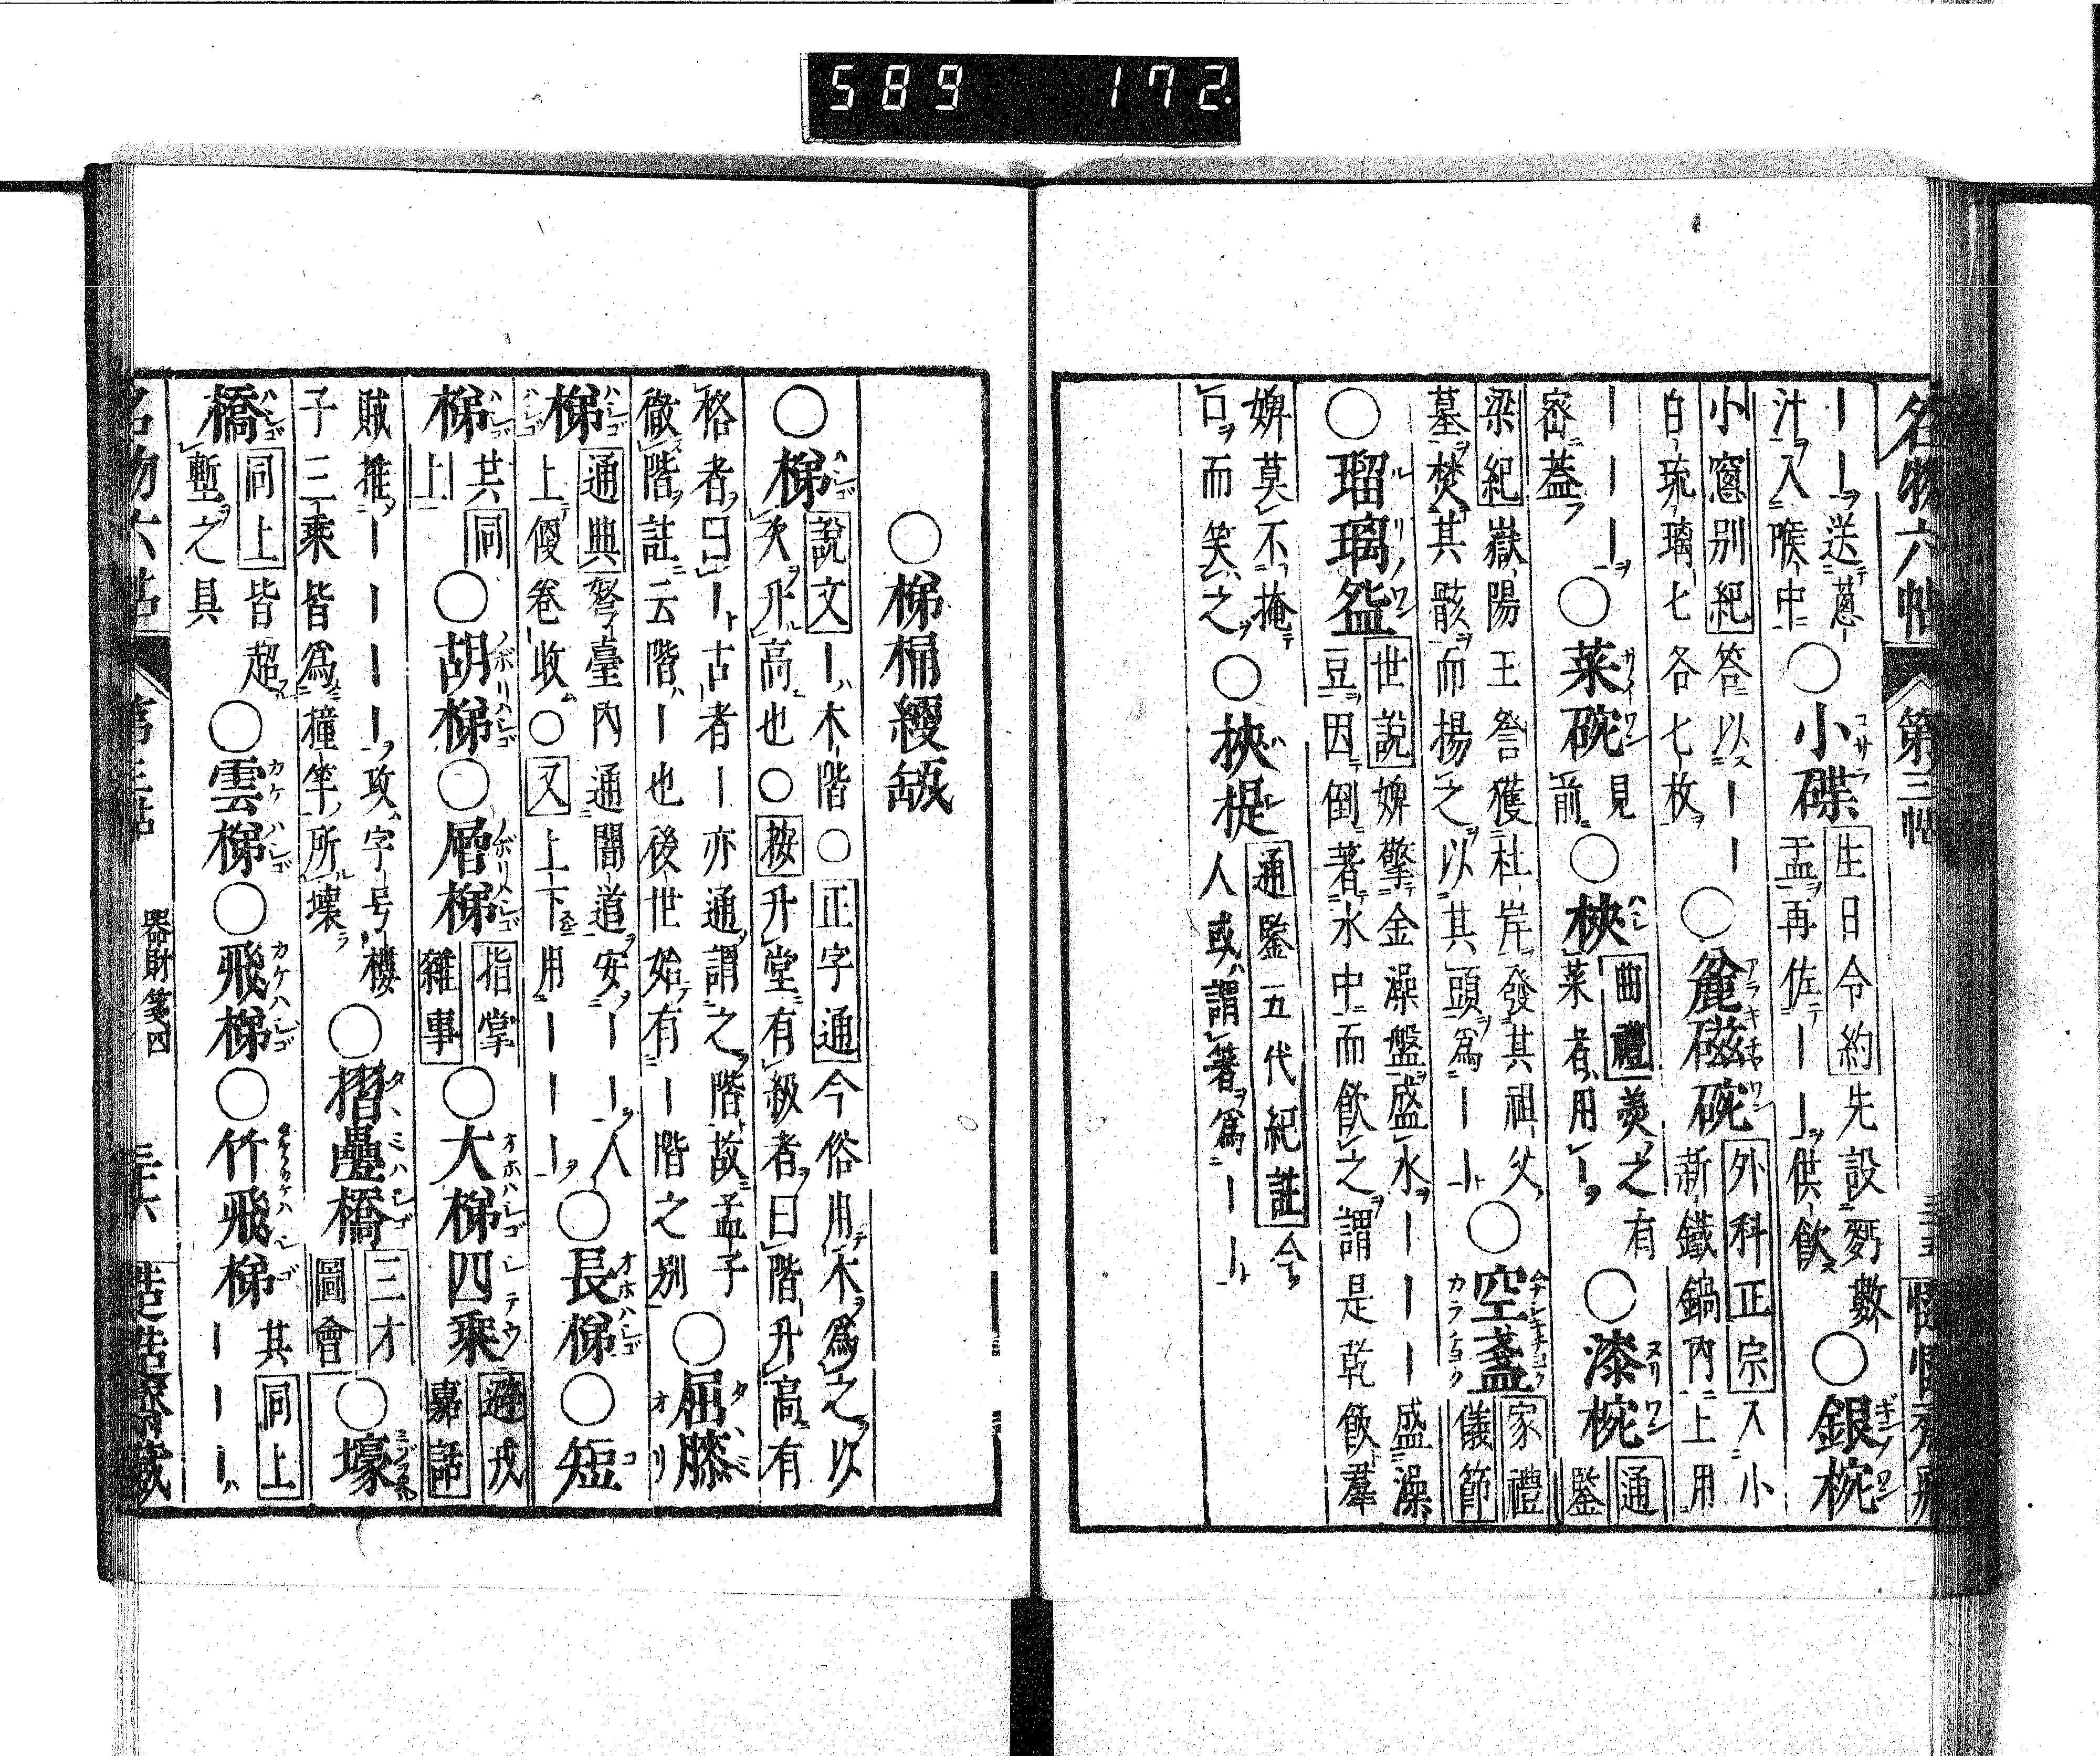 589 172.
名物六帖 第三帖
｜｜送葱 ○小碟 生日令約 先設麪數 ○銀椀
汁入喉中 盂再佐｜｜供飲
小窻別紀 答以｜｜ ○麄磁碗 外科正宗 入小
白琉璃七各七枚 新鐵鍋內上用
｜｜｜ ○菜碗 見前 ○梜 曲禮 羹之有 ○漆椀 通鑑
密蓋 菜者用｜
梁紀 嶽陽王詧獲杜岸發其祖父 ○空盞 家禮儀節
墓焚其骸而揚之以其頭爲｜｜
○瑠璃盌 世說 婢擎金澡盤盛水｜｜｜｜盛澡
豆因倒著水中而飲之謂是乾飯羣
婢莫不掩 ○梜提 通鑒五代紀註 今
口而笑之 人或謂箸爲｜｜
○梯
○梯 說文 ｜木階○ 正字通 今俗用木爲之以
升高也○ 按 升堂有級者曰階升高有
格者曰｜古者｜亦通謂之階故孟子 ○屈膝
階註云階｜也後世始有｜階之別
梯 通典 弩臺內通闇道安｜｜人 ○長梯 ○短
上便卷收○ 又 上下用｜｜｜
梯 共同上 ○胡梯 ○層梯 指掌雜事 ○大梯四乘
賊推｜｜｜｜攻字号樓 ○摺疊橋 三才圖會 ○壕
子三乘皆爲撞竿所壞
橋 同上 皆超 ○雲梯 ○飛梯 ○竹飛梯 共 同上
塹之具 ｜｜｜
器財箋四